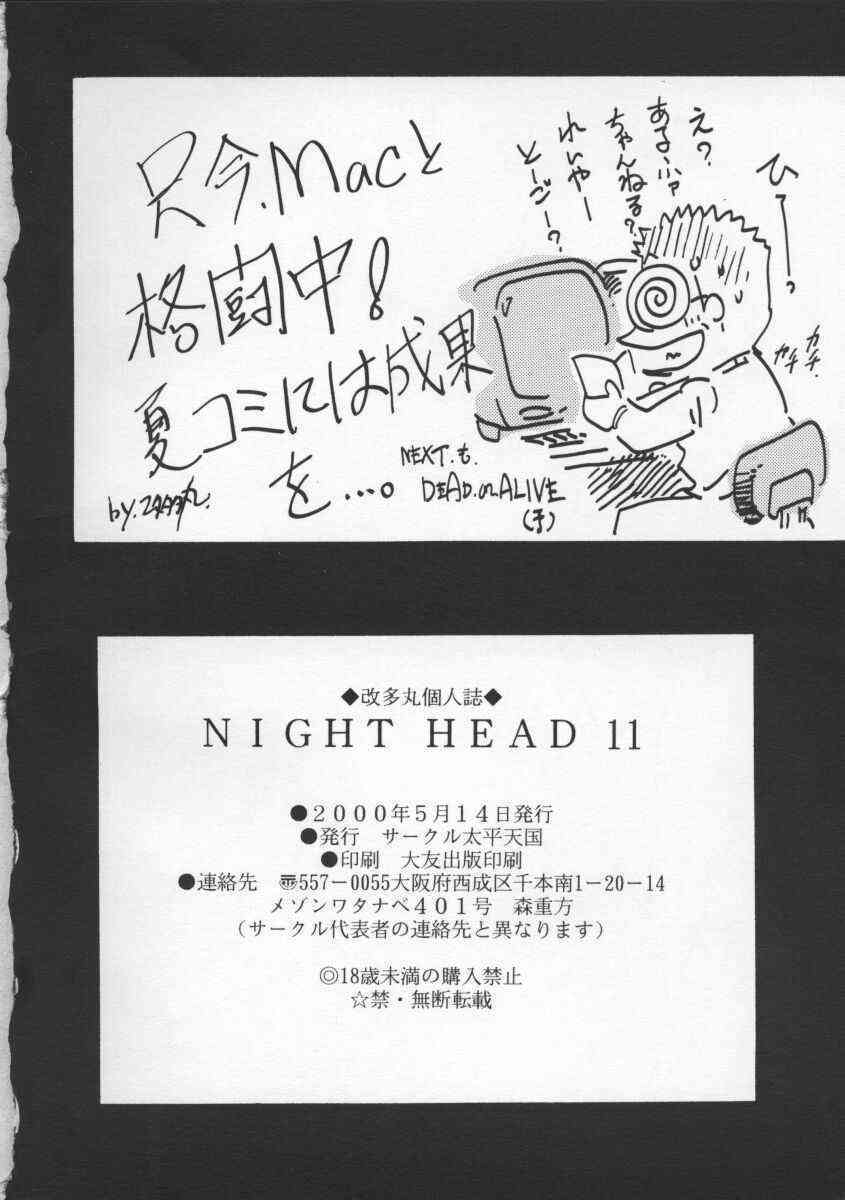 只今、Macと
格闘中！
夏コミには成果
を…。
え？
あるふァ
ちゃんねる？
れいやー
とーごー？
ひーっ
カチ
カチ
NEXT.も.
DEAD.or ALIVE
(予)
◆改多丸個人誌◆
NIGHT HEAD 11
●2000年5月14日発行
●発行　サークル太平天国
●印刷　大友出版印刷
●連絡先　〠557-0055大阪府西成区千本南1-20-14
メゾンワタナベ401号　森重方
(サークル代表者の連絡先と異なります)
◎18歳未満の購入禁止
☆禁・無断転載